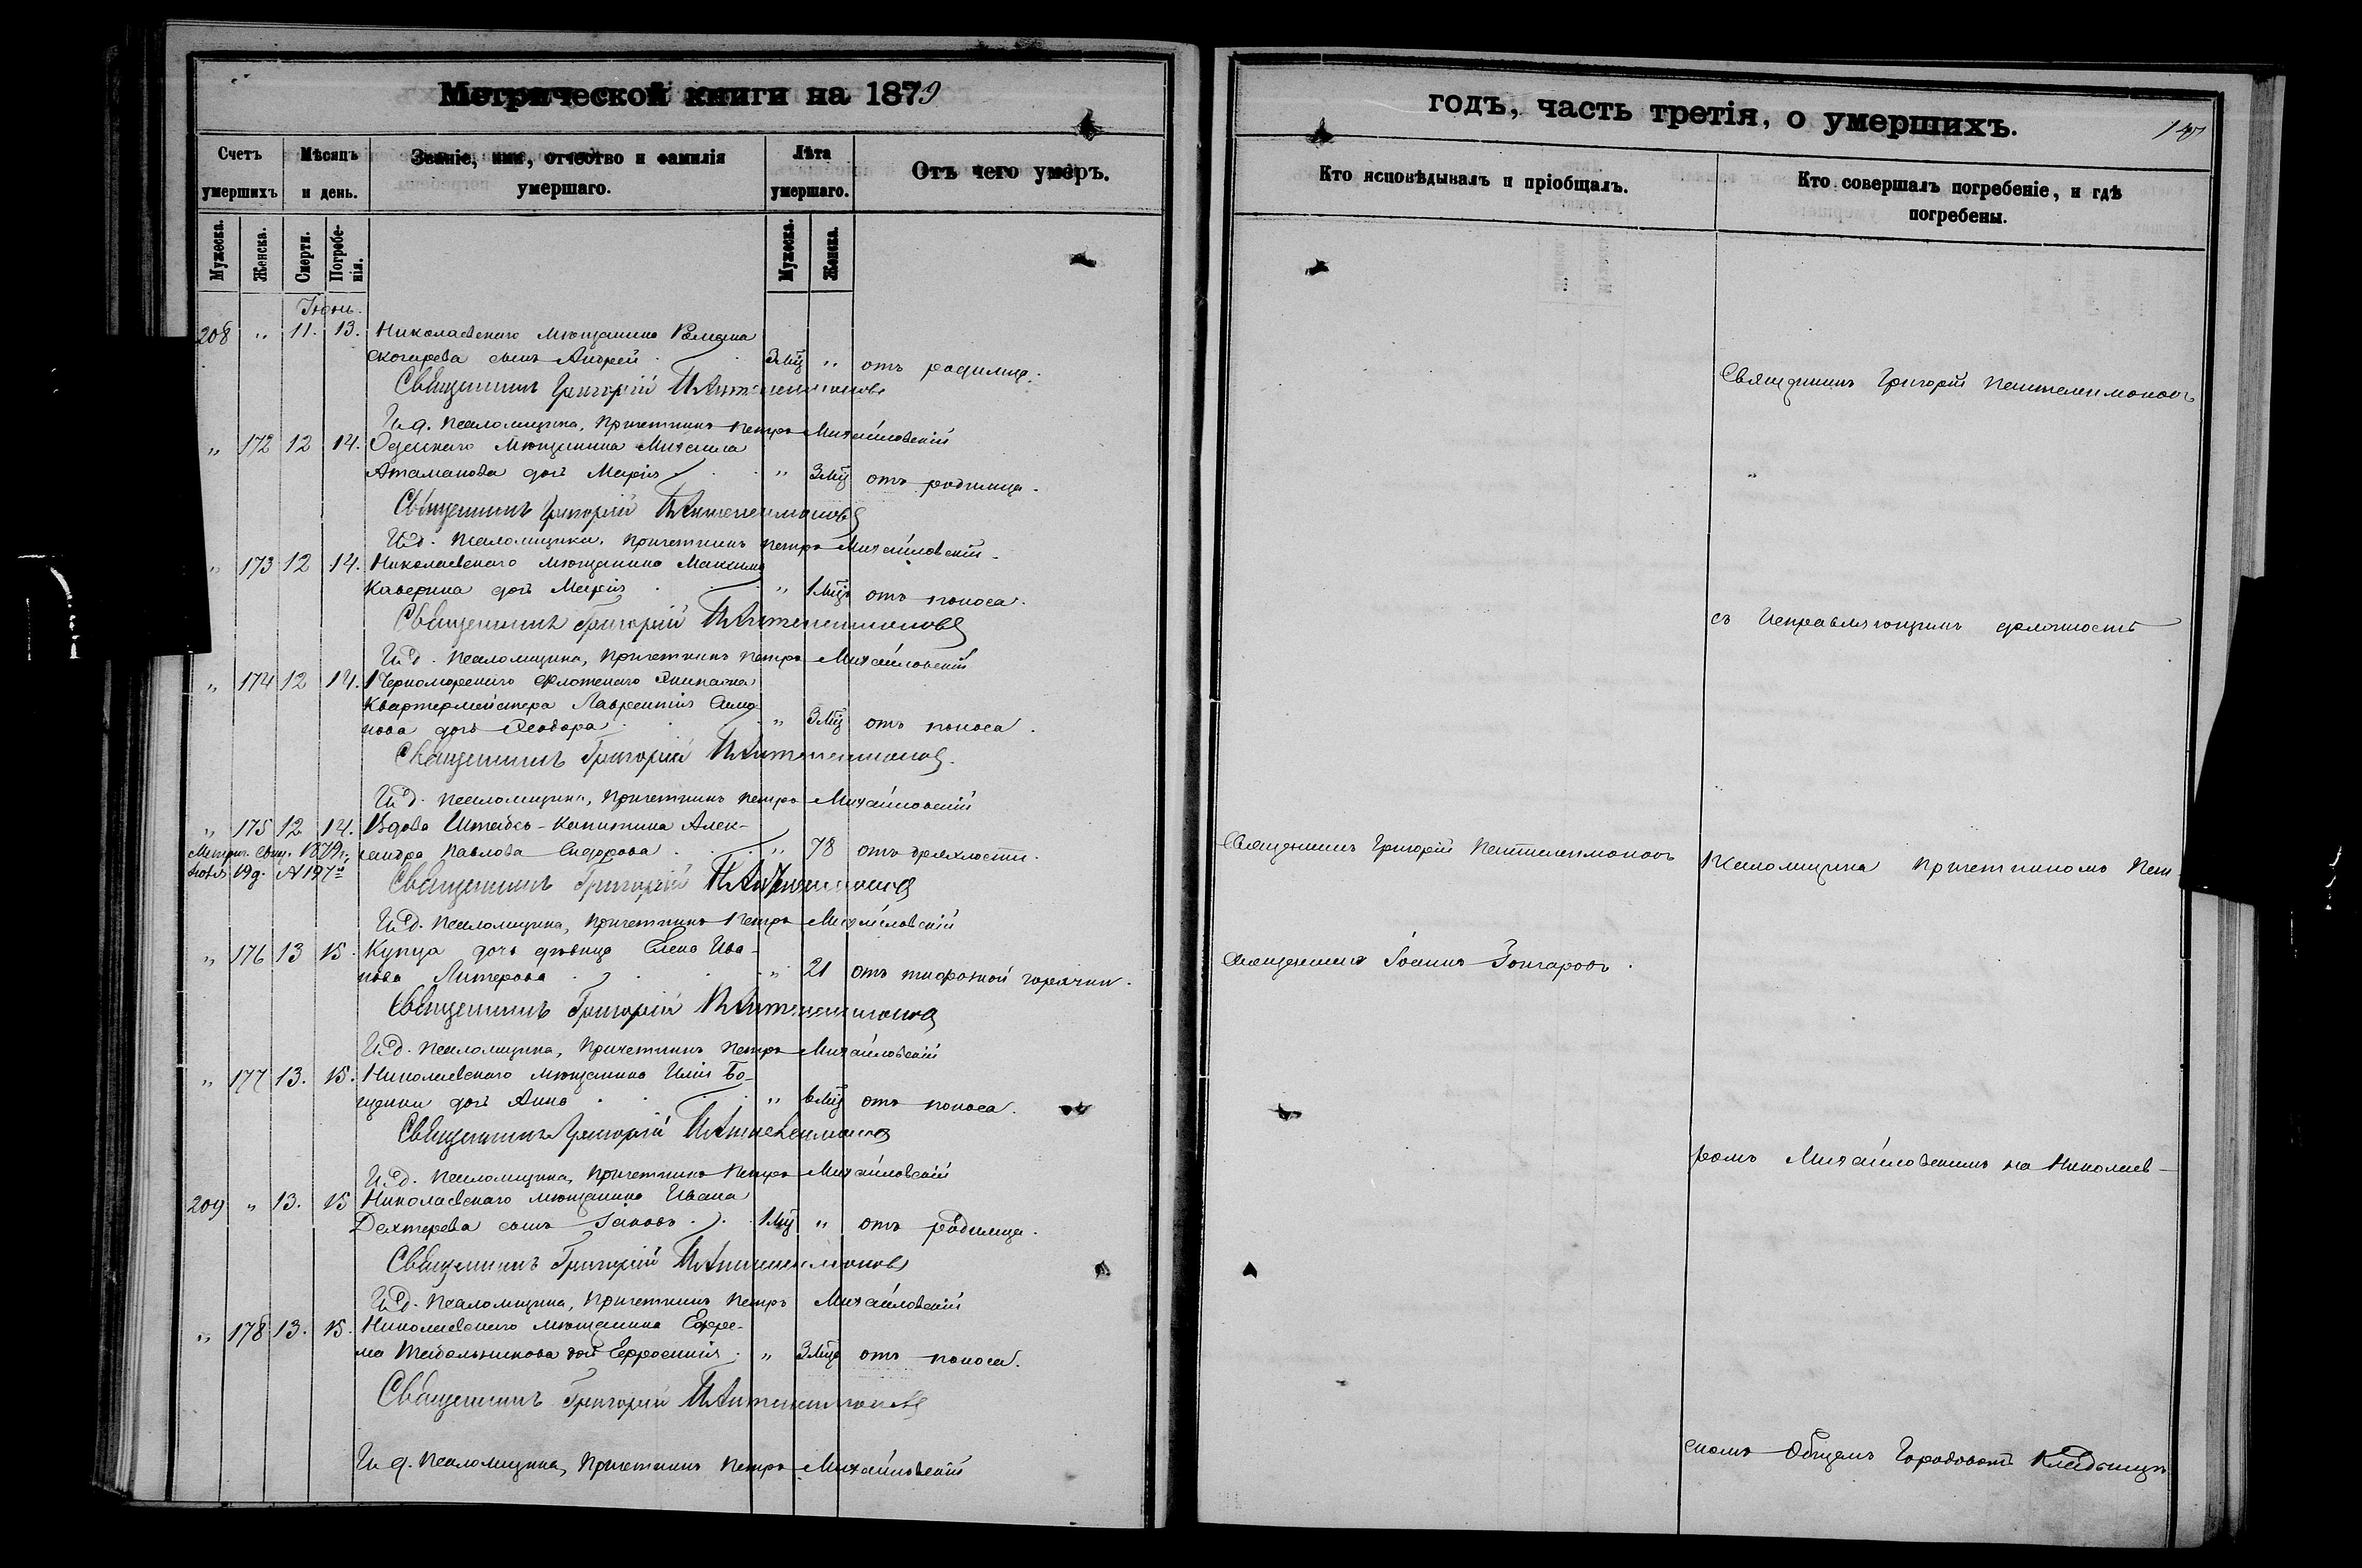 Метрической книги на 1879
Счетъ умершихъ
Мѣсяцъ и день.
Званіе, имя, отчество и фамилія умершаго.
Лѣта умершаго.
Отъ чего умеръ.
Мужеска.
Женска.
Смерти.
Погребенія.
Мужеска.
Женска.
Іюнь.
208 " 11. 13. Николаевскаго мѣщанина Романа
сынъ Андрей 3 мц " отъ родимца.
Священникъ Григорій Пантелеимоновъ
И. д. Псаломщика, Причетникъ Петръ Михайловскій
" 172 12 14. Одесскаго мѣщанина Михаила
Атаманова дочь Марія " 3 мц отъ родимца.
Священникъ Григорій Пантелеимоновъ
И. д. Псаломщика, Причетникъ Петръ Михайловскій
" 173 12 14. Николаевскаго мѣщанина Максима
Каверина дочь Марія " 1 мцъ отъ поноса.
Священникъ Григорій Пантелеимоновъ
И. д. Псаломщика, Причетникъ Петръ Михайловскій
" 174 12 14. 1 Черноморскаго Флотскаго Экипажа
Квартермейстера Лаврентія Симо-
нова дочь Ѳеодора " 3 мц отъ поноса.
Священникъ Григорій Пантелеимоновъ.
И. д. Псаломщика, Причетникъ Петръ Михайловскій
" 175 12 14. Вдова Штабсъ-Капитана Алек-
сандра Павлова Сидорова " 78 отъ дряхлости.
Метрич. свид. 1879 г.
19 д. № 197
Священникъ Григорій Пантелеимоновъ
И. д. Псаломщика, Причетникъ Петръ Михайловскій
" 176 13 15. Купца дочь дѣвица Елена Ива-
нова " 21 отъ тифозной горячки.
Священникъ Григорій Пантелеимоновъ
И. д. Псаломщика, Причетникъ Петръ Михайловскій
" 177 13. 15. Николаевскаго мѣщанина Иліи Бо-
дочь Анна " 6 мц отъ поноса.
Священникъ Григорій Пантелеимоновъ
И. д. Псаломщика, Причетникъ Петръ Михайловскій
209 " 13. 15 Николаевскаго мѣщанина Ивана
Дехтерева сынъ Іаковъ 1 мц " отъ родимца.
Священникъ Григорій Пантелеимоновъ
И. д. Псаломщика, Причетникъ Петръ Михайловскій
" 178 13. 15. Николаевскаго мѣщанина Ефре-
ма дочь Ефросинія " 3 мца отъ поноса.
Священникъ Григорій Пантелеимоновъ
И. д. Псаломщика, Причетникъ Петръ Михайловскій
годъ, часть третія, о умершихъ.
Кто исповѣдывалъ и пріобщалъ.
Кто совершалъ погребеніе, и гдѣ погребены.
Священникъ Григорій Пантелеимоновъ
"
съ Исправляющимъ должность
Священникъ Григорій Пантелеимоновъ
Псаломщика Причетникомъ Пет
Священникъ Іоаннъ Гончаровъ.
ромъ Михайловскимъ на Николаев-
скомъ Общемъ Городовомъ Кладбищѣ